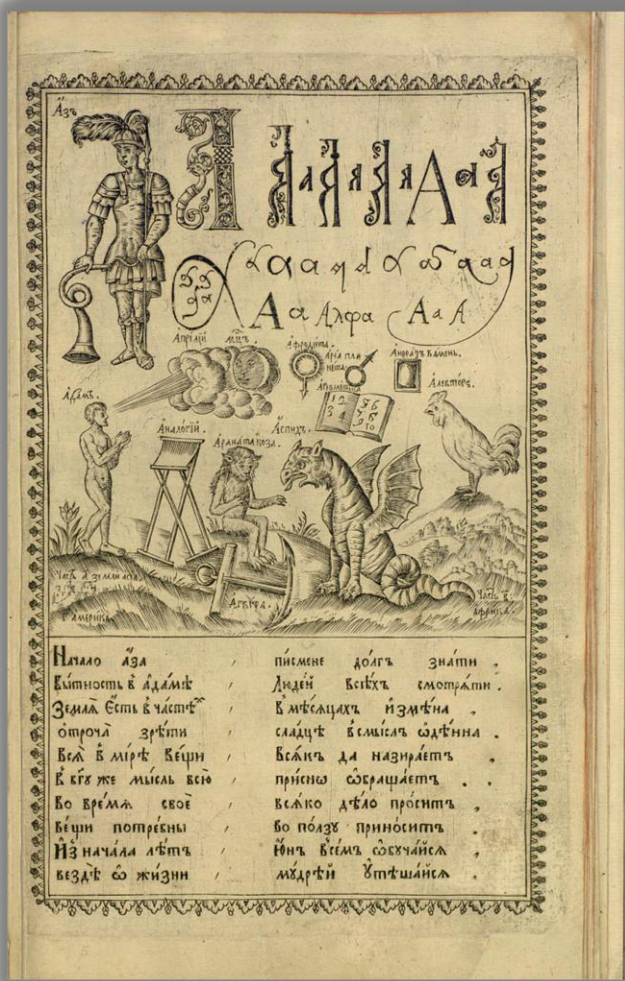 Азъ
А а А я А я А а
А а Алфа А а А
Априлїй мцъ.
Афродита.
Арїа пла
нета
Анфраѯъ камень.
Алектѡръ.
1 2
3 4
7 6
7 8
9
10
Адамъ.
Аналогїй.
Аспихъ.
Часть а земли асіа
америка
Часть в
африка
Начало а҆́за , пи́смене до́лгъ зна́ти .
Бы́тность в̾ а҆да́мѣ , Люде́й всѣ́хъ смотрѧ́ти .
Землѧ̀ є҆́сть в̾ ча́стѣхъ , В̾ мѣ́сѧцахъ и҆змѣ́на .
о҆́троча зрѣ́ти , сла́дцѣ в̾ смы́слъ ѡ҆дѣ́нна .
Всѧ̑ в̾ мі́рѣ ве́щи , Всѧ́къ да назира́етъ .
К̾ бг҃у же мы́сль всю̀ , при́снѡ ѡ҆браща́етъ .
Во вре́мѧ своѐ , всѧ́ко дѣ́ло про́ситъ .
ве́щи потре́бны , во по́лзу прино́ситъ .
И҆з̾ нача́ла лѣ́тъ , Ю҆́нъ все́мъ ѡ҆буча́йсѧ .
вездѣ̀ ѡ҆ жи́зни , мꙋ́дрѣй ᲂу҆тѣша́йсѧ .